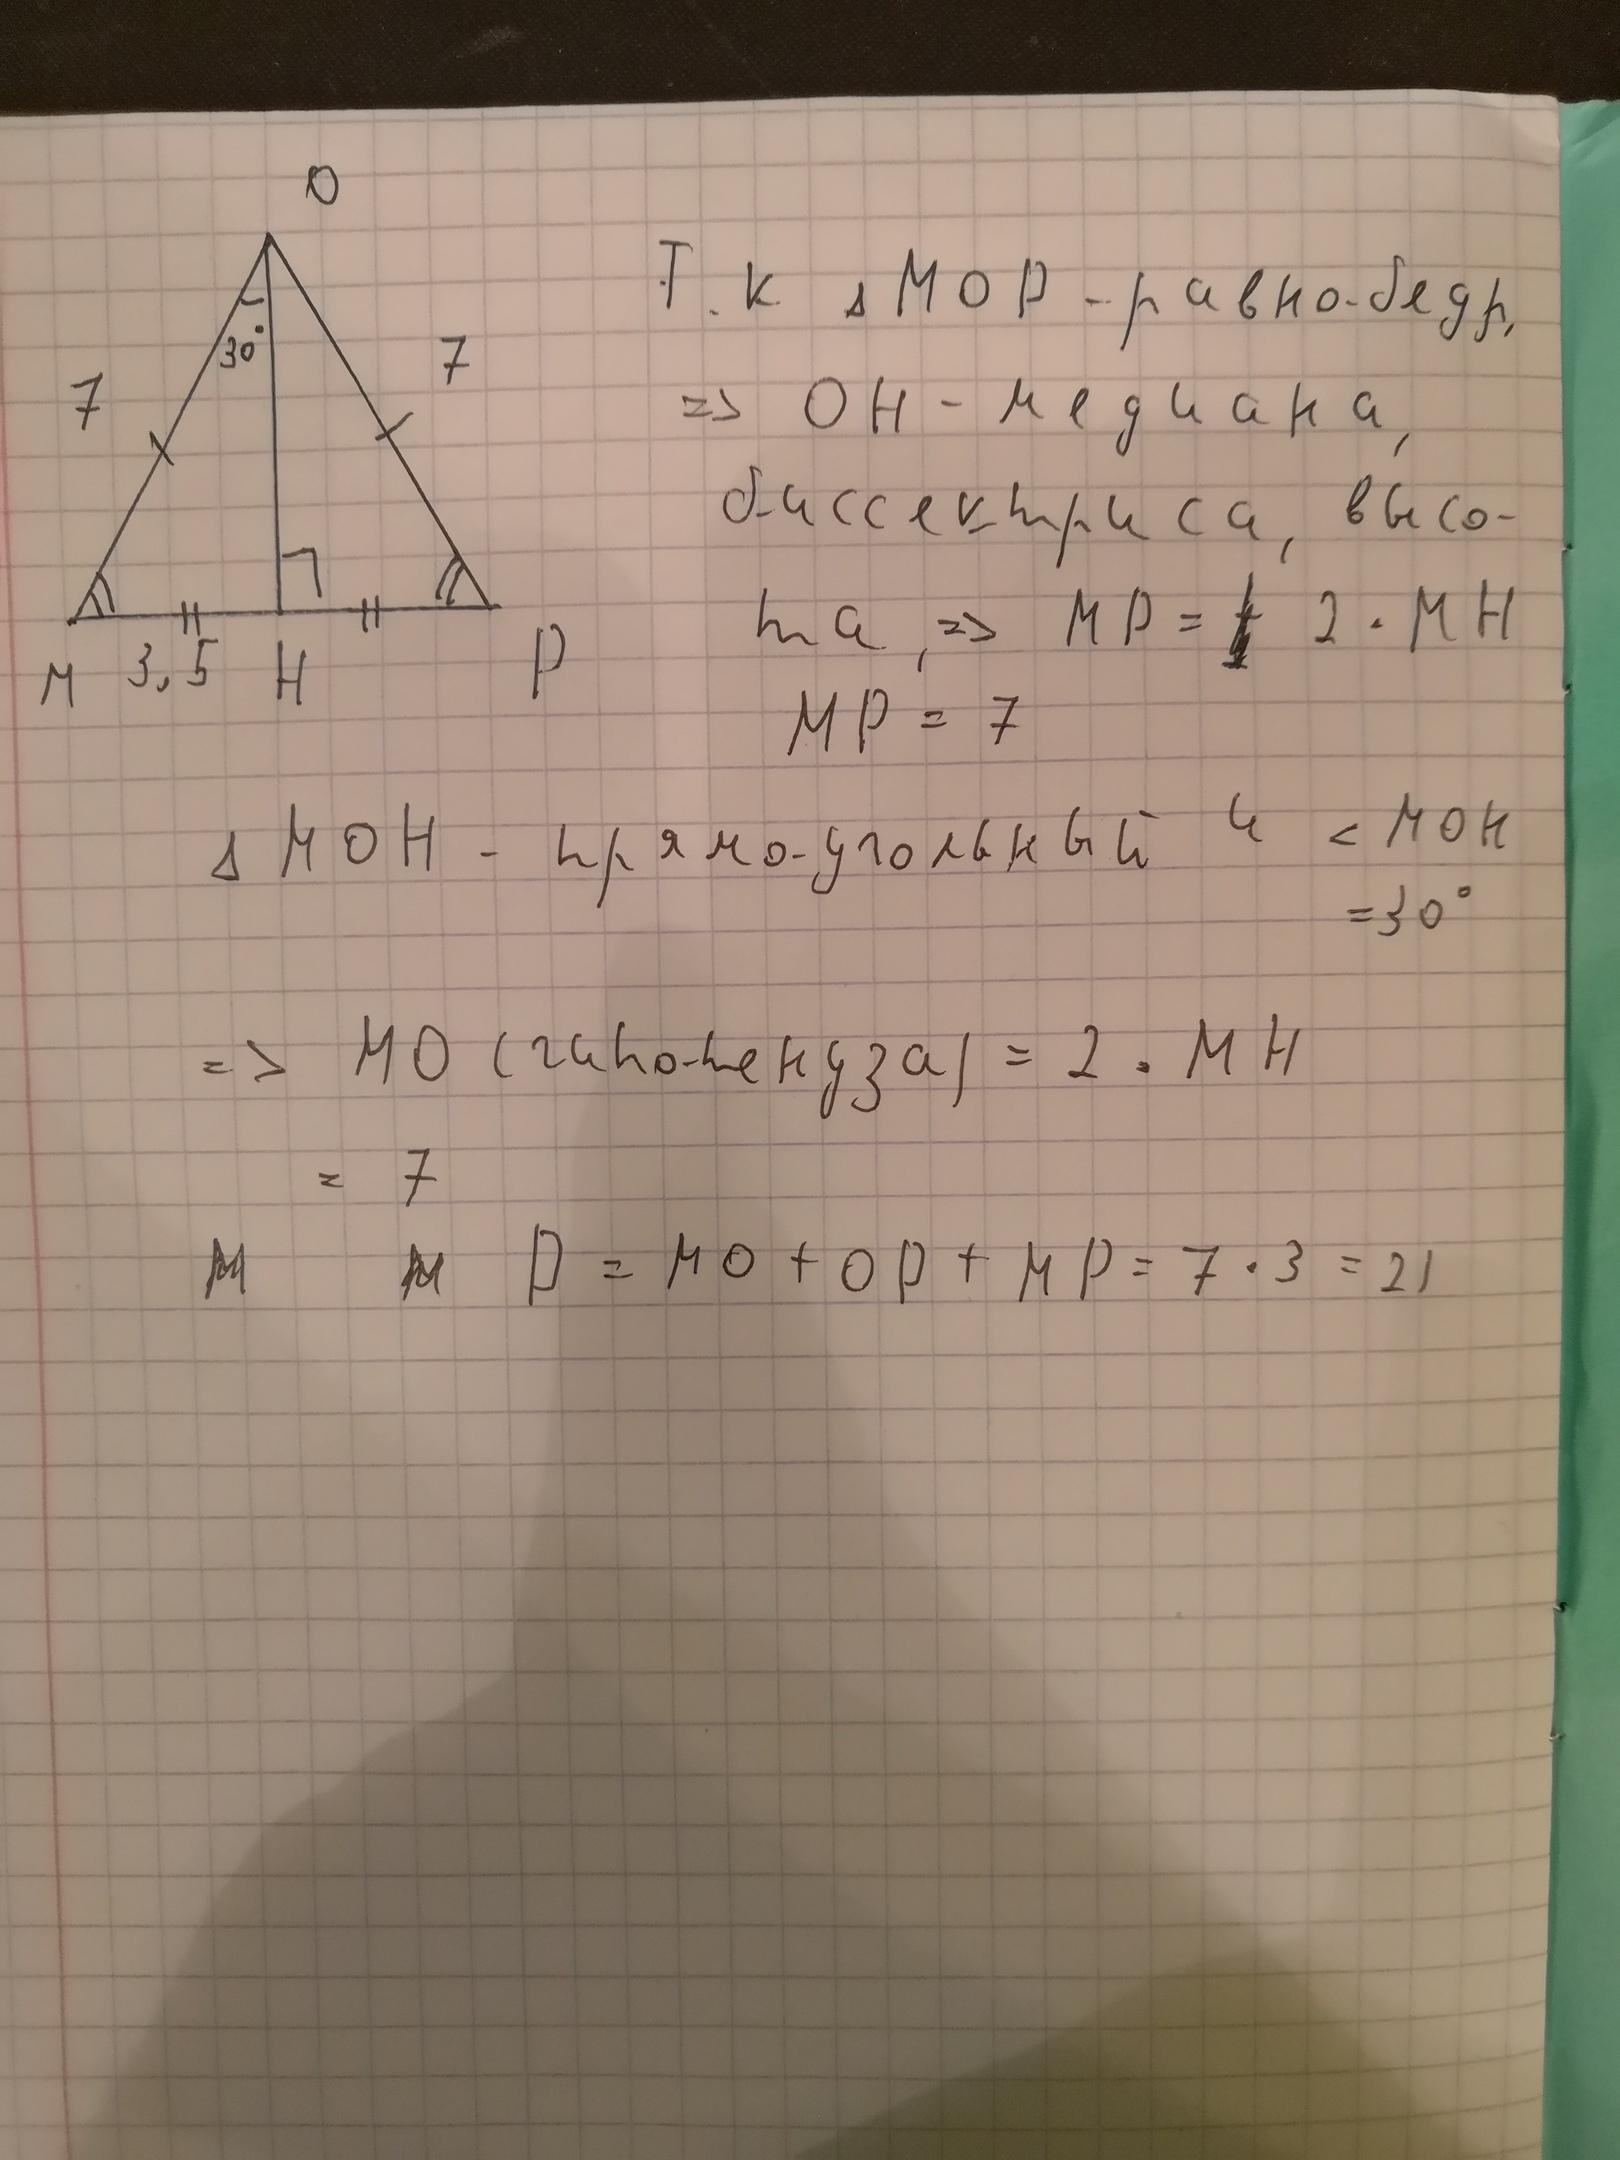 O
30°
7
7
M 3,5 H P
Т.к ΔMOP - равнобедр,
=> OH - медиана,
биссектриса, высо-
та, => MP = 2 · MH
MP = 7
ΔMOH - прямоугольный и <MOH
=30°
=> MO (гипотенуза) = 2 · MH
= 7
P = MO + OP + MP = 7 · 3 = 21